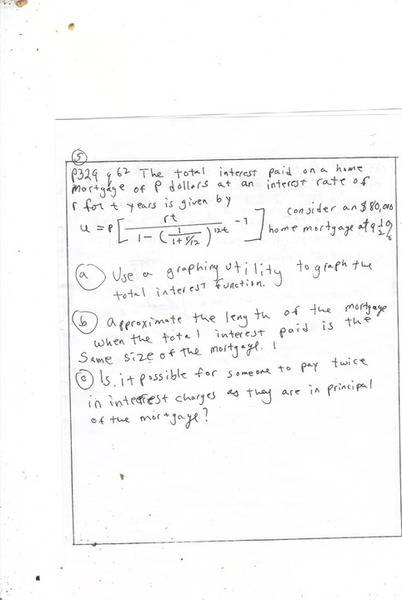 5
P329 #62 The total interest paid on a home
mortgage of P dollars at an interest rate of
r for t years is given by
u = P [ rt / (1 - (1/(1+r/12))^12t) - 1 ] consider an $80,000
home mortgage at 9 1/2 %
a Use a graphing utility to graph the
total interest function.
b approximate the length of the mortgage
when the total interest paid is the
same size of the mortgage.
c Is it possible for someone to pay twice
in interest charges as they are in principal
of the mortgage?